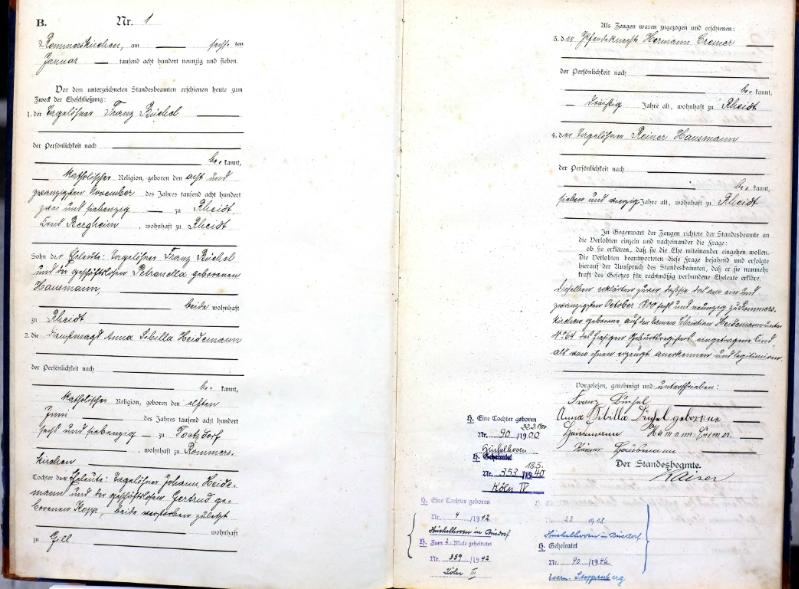 B. Nr. 1
Rommerskirchen, am sechsten
Januar tausend acht hundert neunzig und sieben.
Vor dem unterzeichneten Standesbeamten erschienen heute zum
Zweck der Eheschließung:
1. der Tagelöhner Franz
der Persönlichkeit nach
be- kannt,
katholischer Religion, geboren den acht und
zwanzigsten November des Jahres tausend acht hundert
zwei und siebenzig zu Rheidt
Kreis Bergheim, wohnhaft zu Rheidt
Sohn der Eheleute: Tagelöhner Franz
und der geschäftslosen Petronella geborenen
Hausmann,
beide wohnhaft
zu Rheidt
2. die Dienstmagd Anna Sibilla Heidemann
der Persönlichkeit nach
be- kannt,
katholischer Religion, geboren den elften
Juni des Jahres tausend acht hundert
sechs und siebenzig zu
wohnhaft zu Rommers-
kirchen
Tochter der Eheleute: Tagelöhner Johann Heide-
mann und der geschäftslosen Gertrud ge-
borenen Kopp, beide verstorben zuletzt
wohnhaft
zu Gill
Als Zeugen waren zugezogen und erschienen:
3. der Pferdeknecht Hermann Cremer
der Persönlichkeit nach
be- kannt,
dreißig Jahre alt, wohnhaft zu Rheidt
4. der Tagelöhner Reiner Hausmann
der Persönlichkeit nach
be- kannt,
sieben und Jahre alt, wohnhaft zu Rheidt
In Gegenwart der Zeugen richtete der Standesbeamte an
die Verlobten einzeln und nacheinander die Frage:
ob sie erklären, daß sie die Ehe miteinander eingehen wollen.
Die Verlobten beantworteten diese Frage bejahend und erfolgte
hierauf der Ausspruch des Standesbeamten, daß er sie nunmehr
kraft des Gesetzes für rechtmäßig verbundene Eheleute erkläre.
Dieselben erklärten daß sie das am ein und
zwanzigsten October 1800 sechs und neunzig zu Rommers-
kirchen geborene auf den Namen Christian Heidemann unter
N° 64 des hiesigen Geburtsregisters eingetragene Kind
als von ihnen erzeugt anerkennen und legitimieren
Vorgelesen, genehmigt und unterschrieben:
Franz
Anna Sibilla geborene
Heidemann Hermann Cremer
Reiner Hausmann
Der Standesbeamte.
Kaiser
H. Eine Tochter geboren
Nr. 90 /1900
H. Geheiratet
Nr. 353 /1940
Köln IV
H. Eine Tochter geboren
Nr. 4 /1912
Hüchelhoven in Büsdorf
H. Zum 2. Male geheiratet
Nr. 359 /1942
Köln II
Hüchelhoven in Büsdorf
H. Geheiratet
Nr. 90 /1946